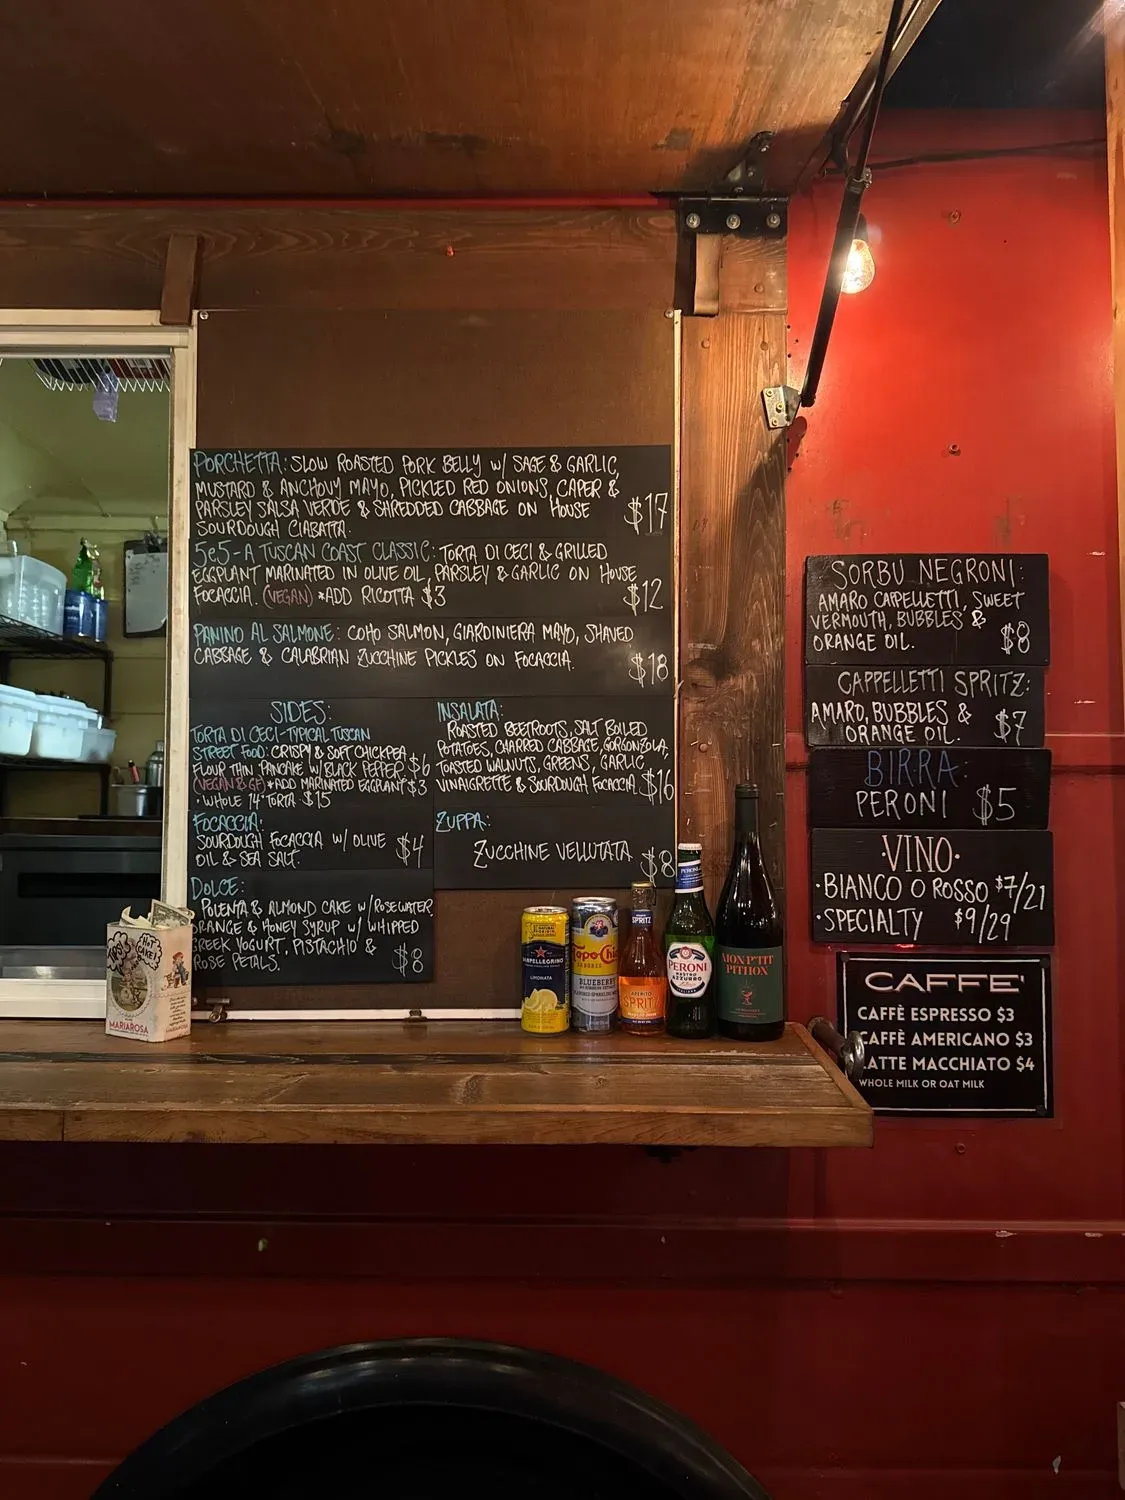 PORCHETTA: SLOW ROASTED PORK BELLY W/ SAGE & GARLIC,
MUSTARD & ANCHOVY MAYO, PICKLED RED ONIONS, CAPER &
PARSLEY SALSA VERDE & SHREDDED CABBAGE ON HOUSE
SOURDOUGH CIABATTA.
$17
5e5 - A TUSCAN COAST CLASSIC: TORTA DI CECI & GRILLED
EGGPLANT MARINATED IN OLIVE OIL, PARSLEY & GARLIC ON HOUSE
FOCACCIA. (VEGAN) *ADD RICOTTA $3
$12
PANINO AL SALMONE: COHO SALMON, GIARDINIERA MAYO, SHAVED
CABBAGE & CALABRIAN ZUCCHINE PICKLES ON FOCACCIA.
$18
SIDES:
TORTA DI CECI - TYPICAL TUSCAN
STREET FOOD: CRISPY & SOFT CHICKPEA
FLOUR THIN PANCAKE W/ BLACK PEPPER $6
(VEGAN & GF) *ADD MARINATED EGGPLANT $3
• WHOLE 14" TORTA $15
FOCACCIA:
SOURDOUGH FOCACCIA W/ OLIVE
OIL & SEA SALT.
$4
DOLCE:
POLENTA & ALMOND CAKE W/ ROSEWATER,
ORANGE & HONEY SYRUP W/ WHIPPED
GREEK YOGURT, PISTACHIO &
ROSE PETALS.
$8
INSALATA:
ROASTED BEETROOTS, SALT BOILED
POTATOES, CHARRED CABBAGE, GORGONZOLA,
TOASTED WALNUTS, GREENS, GARLIC
VINAIGRETTE & SOURDOUGH FOCACCIA $16
ZUPPA:
ZUCCHINE VELLUTATA
$8
SORBU NEGRONI:
AMARO CAPPELLETTI, SWEET
VERMOUTH, BUBBLES &
ORANGE OIL.
$8
CAPPELLETTI SPRITZ:
AMARO, BUBBLES &
ORANGE OIL.
$7
BIRRA:
PERONI $5
•VINO•
•BIANCO O ROSSO $7/21
•SPECIALTY $9/29
CAFFE'
CAFFÈ ESPRESSO $3
CAFFÈ AMERICANO $3
LATTE MACCHIATO $4
WHOLE MILK OR OAT MILK
TIPS?
HOT CAKE!
MARIAROSA
SANPELLEGRINO
LIMONATA
Topo Chi
BLUEBERRY
SPRITZ
APERITIVO
SPRITZ
PERONI
PERONI
NASTRO
AZZURRO
MON P'TIT
PITHON